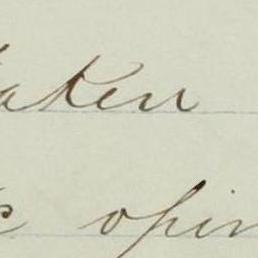 taken
opin